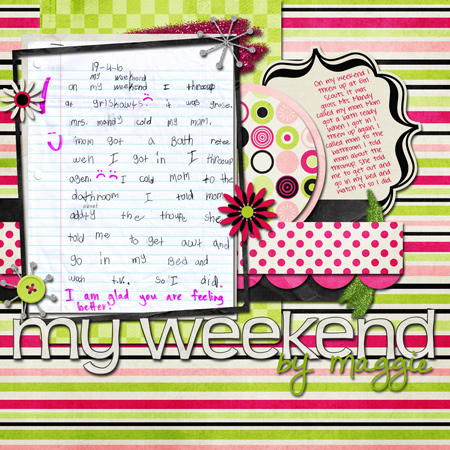 19-4-6
my weekend
on my weekend I throup
at grlskowts. it was gruse.
mrs. mandy cold my mom.
mom got a bath
wen I got in I throup
agen. I cold mom to the
bathroom I told mom
about
the she
told me to get awt and
go in my bed and
wach t.v. so I did.
I am glad you are feeling
better!
On my weekend I
threw up at Girl
Scouts. It was
gross. Mrs. Mandy
called my mom. Mom
got a bath ready
when I got in I
threw up again. I
called mom to the
bathroom. I told
mom about the
throwup. She told
me to get out and
go in my bed and
watch tv so I did.
my weekend
by maggie